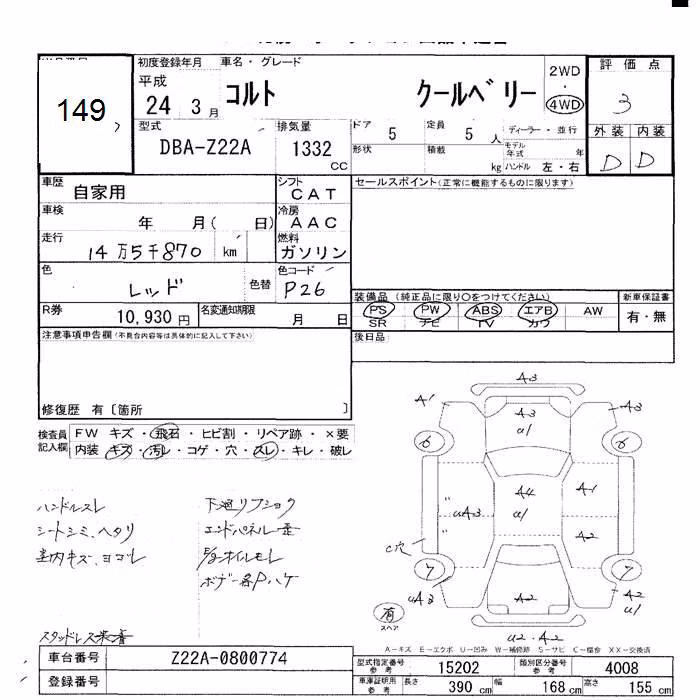 初度登録年月 車名・グレード
平成 24 3 月 コルト クールベリー 2WD ・ 4WD
評価点 3
149
型式 DBA-Z22A 排気量 1332 CC
ドア 5 定員 5 人 ディーラー・並行
形状 積載 kg モデル年式 年
ハンドル 左・右
外装 内装
D D
車歴 自家用 シフト CAT
セールスポイント(正常に機能するものに限ります)
車検 年 月( 日) 冷房 AAC
走行 14万5千870 km 燃料 ガソリン
色 レッド 色替 色コード P26
装備品 (純正品に限り○をつけてください) 新車保証書
PS PW ABS エアB AW 有・無
SR ナビ TV カワ
R券 10,930 円 名変通知期限 月 日
注意事項申告欄(不具合内容等は具体的に記入して下さい)
後日品
修復歴 有〔箇所 〕
検査員記入欄 FW キズ・飛石・ヒビ割・リペア跡・×要
内装 キズ・汚レ・コゲ・穴・スレ・キレ・破レ
ハンドルスレ 下廻リフショク
シートシミ、ヘタリ エンドパネル歪
室内キズ、ヨゴレ E/gオイルモレ
ボデー各Pハゲ
スタッドレス装着
A3
A1 A3 A3
U1
6 6
A4 A1
UA3 U1
A2
C穴
7 7
UA3 A2 A2
U1
有 スペア
U2・A2
A－キズ E－エクボ U－凹み W－補修跡 S－サビ C－腐食 XX－交換済
車台番号 Z22A-0800774
型式指定番号参考 15202 類別区分番号参考 4008
登録番号
車庫証明用参考 長さ 390 cm 幅 168 cm 高さ 155 cm